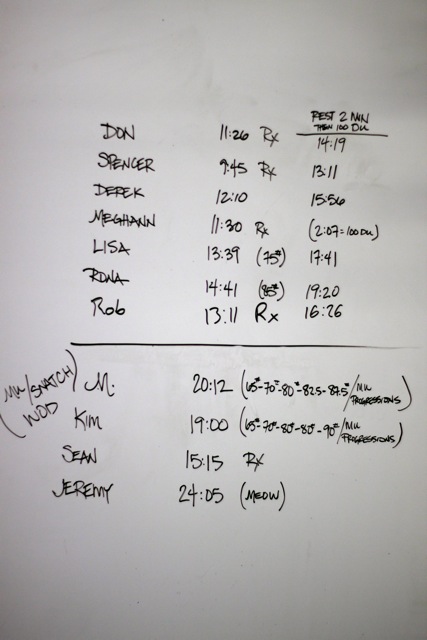 REST 2 MIN
THEN 100 DU
DON 11:26 Rx 14:19
SPENCER 9:45 Rx 13:11
DEREK 12:10 15:56
MEGHANN 11:30 Rx (2:07=100 DU)
LISA 13:39 (75#) 17:41
RONA 14:41 (85#) 19:20
Rob 13:11 Rx 16:26
(MU/SNATCH WOD)
M. 20:12 (65#-70#-80#-82.5-87.5#/MU PROGRESSIONS)
Kim 19:00 (65#-70#-80#-80#-90#/MU PROGRESSIONS)
SEAN 15:15 Rx
JEREMY 24:05 (MEOW)